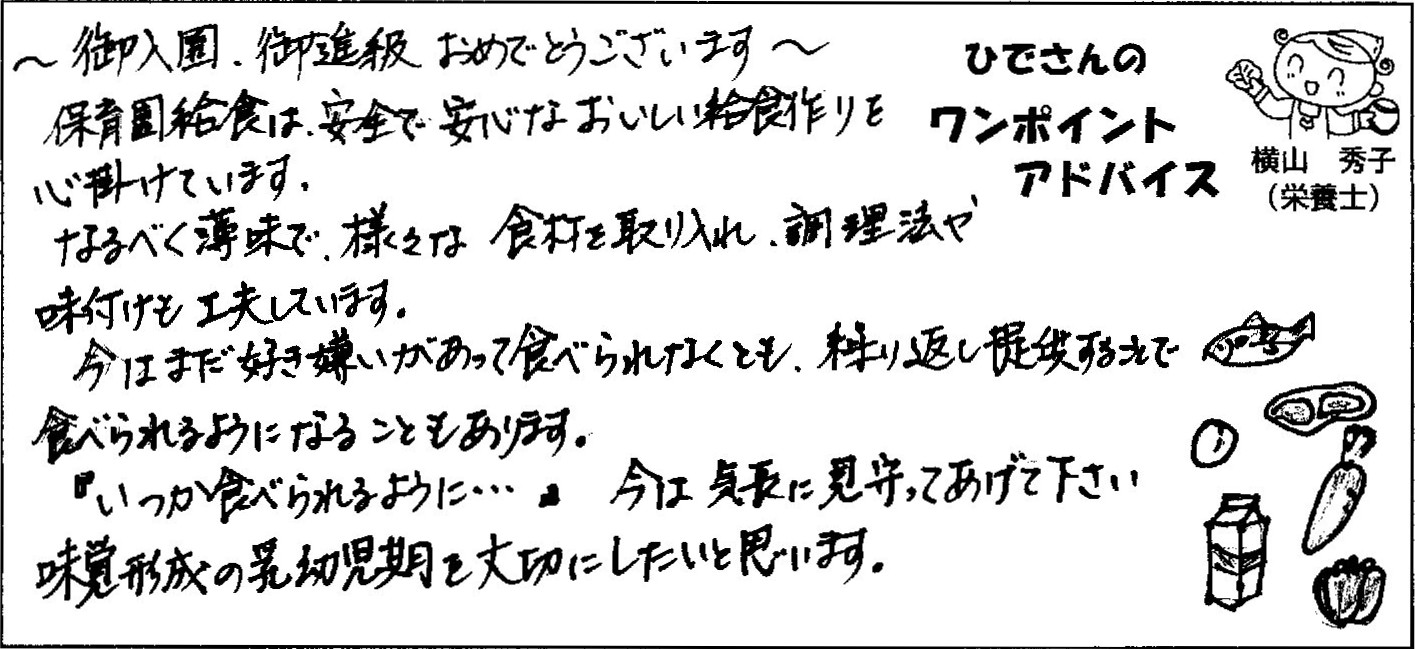 ～御入園、御進級 おめでとうございます～
保育園給食は、安全で安心なおいしい給食作りを
心掛けています。
なるべく薄味で、様々な食材を取り入れ、調理法や
味付けも工夫しています。
今はまだ好き嫌いがあって食べられなくとも、繰り返し提供する事で
食べられるようになることもあります。
『いつか食べられるように…』 今は気長に見守ってあげて下さい
味覚形成の乳幼児期を大切にしたいと思います。
ひでさんの
ワンポイント
アドバイス
横山 秀子
（栄養士）